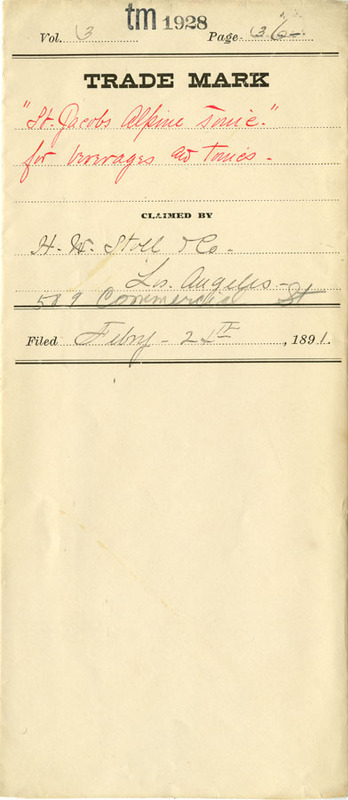 tm 1928
Vol. 3 Page 36
TRADE MARK
"St. Jacobs Alpine Tonic."
for beverages and Tonics -
CLAIMED BY
H. W. Stoll & Co. -
Los. Angeles -
509 Commercial St
Filed Febry - 24TH, 1891.